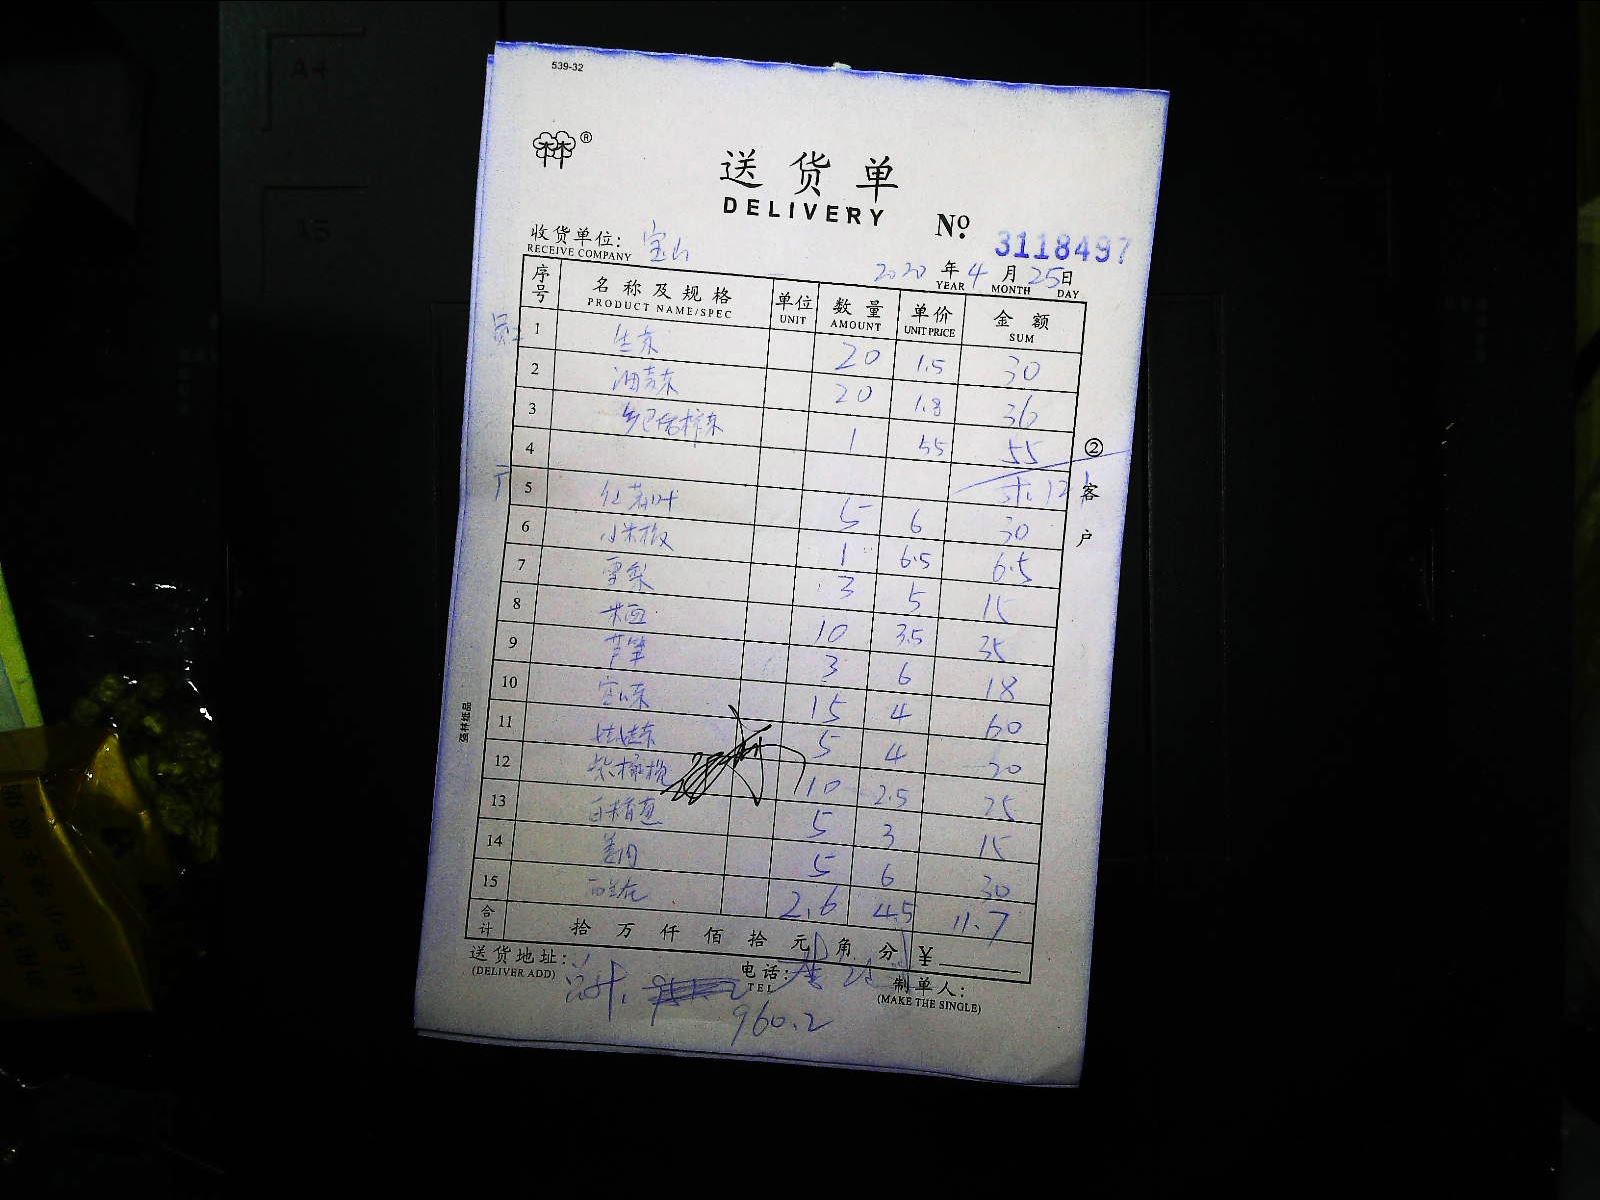 539-32
林®
送货单
DELIVERY
No. 3118497
收货单位: 宝山
RECEIVE COMPANY
2020 年 4 月 25 日
YEAR MONTH DAY
序号 名称及规格 单位 数量 单价 金额
PRODUCT NAME/SPEC UNIT AMOUNT UNIT PRICE SUM
1 生菜 20 1.5 30
2 油麦菜 20 1.8 36
3 1 55 55
4 121
5 红薯叶 5 6 30
6 小米椒 1 6.5 6.5
7 雪梨 3 5 15
8 10 3.5 35
9 芦笋 3 6 18
10 15 4 60
11 5 4 20
12 10 2.5 25
13 5 3 15
14 姜肉 5 6 30
15 西兰花 2.6 4.5 11.7
合计 拾 万 仟 佰 拾 元 角 分 ¥
送货地址: 电话: 制单人:
(DELIVER ADD) TEL (MAKE THE SINGLE)
960.2
② 客户
强林纸品
A4
A5